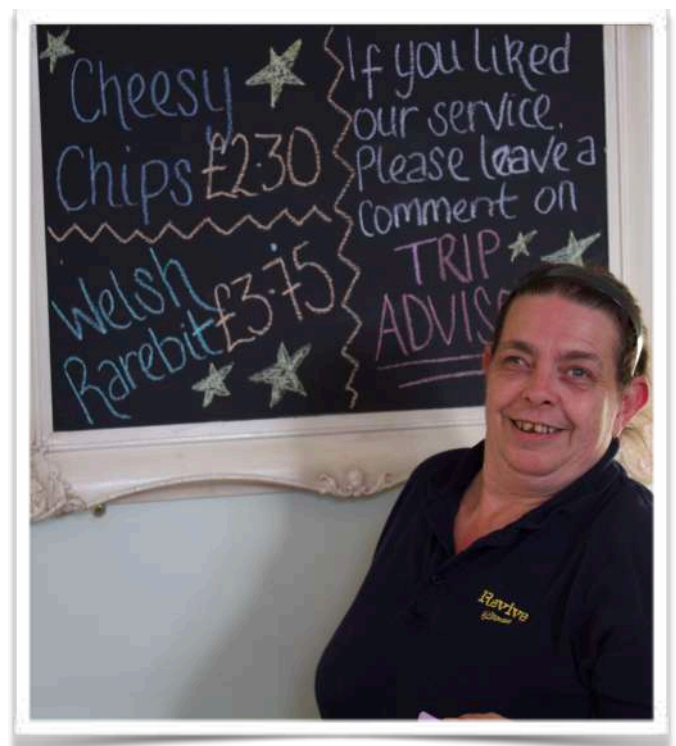 Cheesy
Chips £2.30
Welsh
Rarebit £3.75
If you liked
our service.
Please leave a
comment on
TRIP
Revive